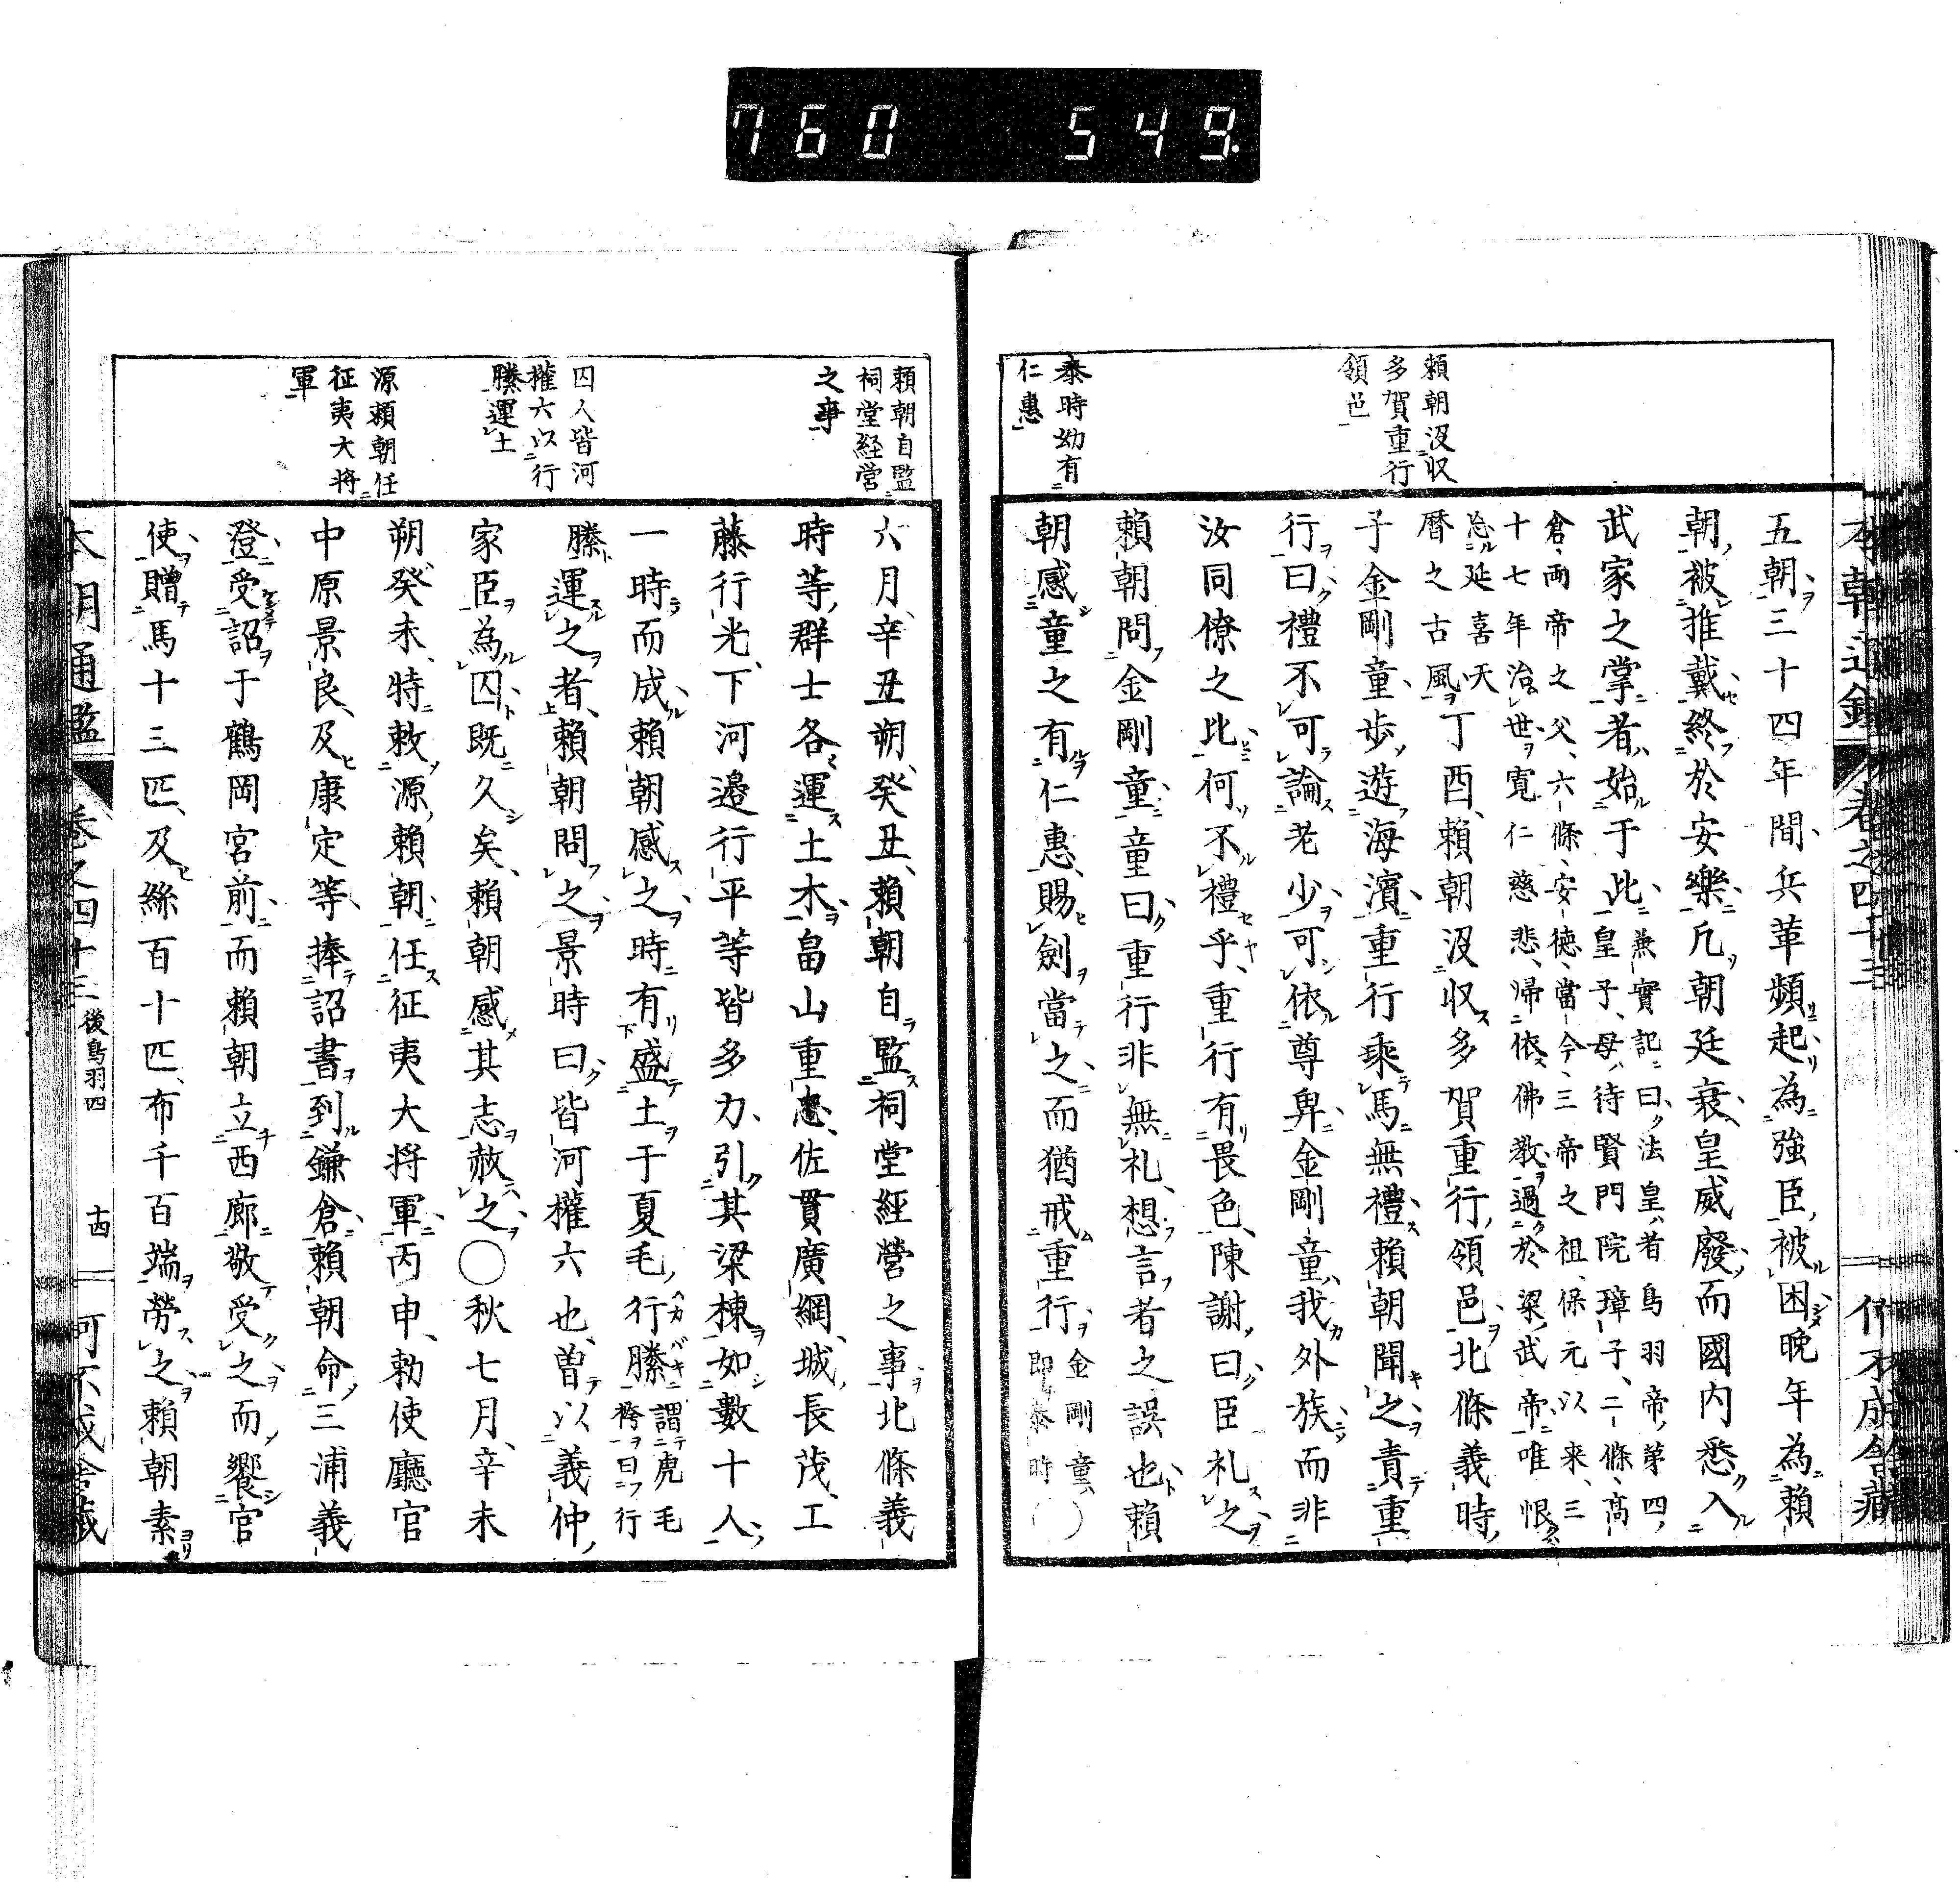 760 549
頼朝沒収
多賀重行
領邑
泰時幼有
仁惠
五朝三十四年間兵革頻起為強臣被困晩年為頼
朝被推戴終於安樂凢朝廷衰皇威廢而國内悉入
武家之掌者始于此兼實記曰法皇者鳥羽帝第四
皇子母待賢門院璋子二條高
倉兩帝之父六條安德當今三帝之祖保元以来三
十七年治世寛仁慈悲歸依佛教過於梁武帝唯恨
忘延喜天
暦之古風丁酉頼朝沒収多賀重行領邑北條義時
子金剛童歩遊海濱重行乘馬無禮頼朝聞之責重
行曰禮不可論老少可依尊卑金剛童我外族而非
汝同僚之比何不禮乎重行有畏色陳謝曰臣礼之
頼朝問金剛童童曰重行非無礼想言者之誤也頼
朝感童之有仁惠賜劍當之而猶戒重行金剛童
即泰時〇
頼朝自監
祠堂経営
之事
四人皆河
權六以行
縢運土
源頼朝任
征夷大将
軍
六月辛丑朔癸丑頼朝自監祠堂經營之事北條義
時等群士各運土木畠山重忠佐貫廣綱城長茂工
藤行光下河邉行平等皆多力引其梁棟如數十人
一時而成頼朝感之時有盛土于夏毛行縢謂虎毛
袴曰行
縢運之者頼朝問之景時曰皆河權六也曽以義仲
家臣為囚既久矣頼朝感其志赦之〇秋七月辛未
朔癸未特敕源頼朝任征夷大将軍丙申勅使廳官
中原景良及康定等捧詔書到鎌倉頼朝命三浦義
澄受詔于鶴岡宮前而頼朝立西廊敬受之而饗官
使贈馬十三匹及絲百十匹布千百端勞之頼朝素
本朝通鑑 卷之四十三 後鳥羽四 十四